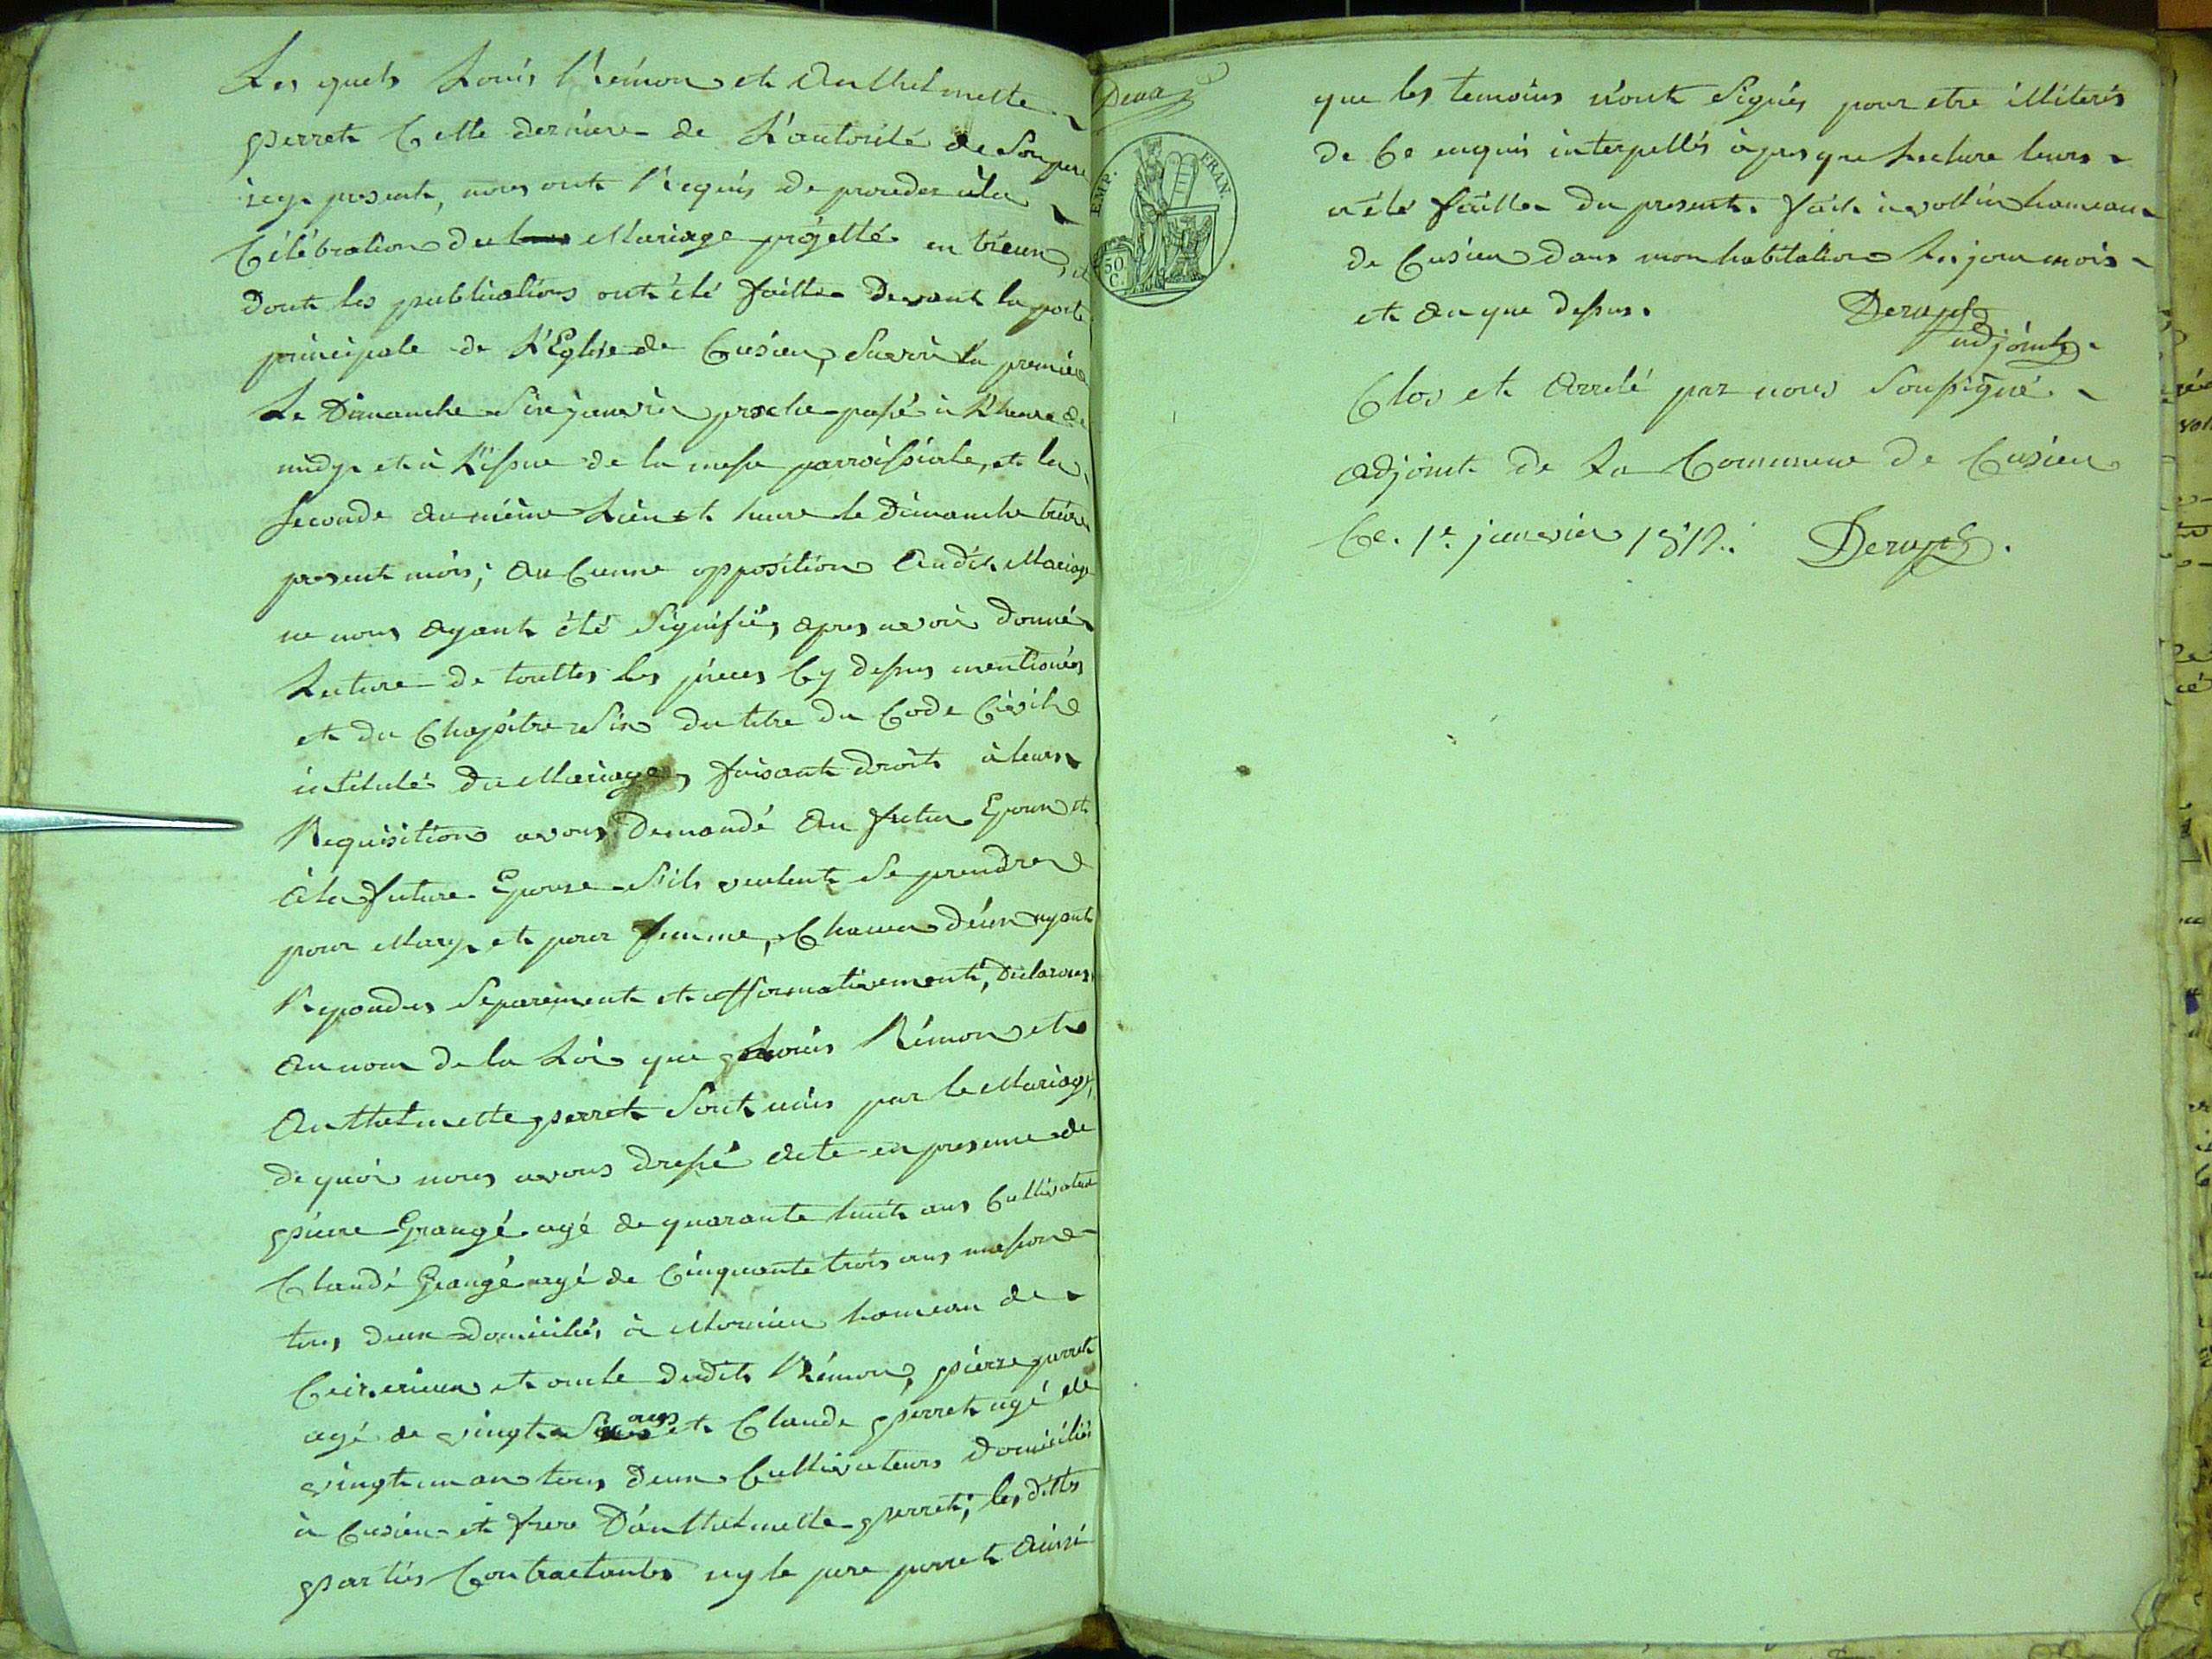 Les quels Louis Rémon et Anthelmette
perret Cette derniere de L'autorité de Son pere
icy present, nous ont Requis de proceder à la
Célébration du Mariage projetté entreux, et
dont les publications ont été faittes devant la porte
principale de L'Eglise de Cusieu, Savoir la premiere
Le Dimanche Six janvier proche passé à l'heure de
midy et à L'issue de la messe parroissiale, et la
Seconde au même Lieu et heure le Dimanche treize
present mois; Aucunne opposition Audit Mariage
ne nous ayant été Signifiée, apres avoir donné
Lecture de touttes les pieces Cy dessus mentionées
et du Chapitre Six du titre du Code Civil
intitulé du Mariage, faisant droit à leurs
Requisition avons demandé au futur Epoux et
à la future Epouse S'ils veulent Se prendre
pour Mary et pour femme, Chacun d'eux ayant
Repondus Separement et affirmativement, Declarons
au nom de la Loi que Louis Rémon et
Anthelmette perret Sont unis par le Mariage,
de quoi nous avons dressé acte en presence de
pierre Grangé agé de quarante huit ans Cultivateur
Claude Grangé agé de Cinquante trois ans masson
tous deux domiciliés à Mornieu hameau de
Ceizerieux et oncle dudit Rémon, pierre perret
agé de vingt Six ans et Claude perret agé de
vingt un an tous deux Cultivateurs domiciliés
à Cusieu et frere D'anthelmette perret; les dittes
parties Contractantes ny le pere perret Ainsi
EMP. FRAN.
50 C.
que les temoins n'ont Signés pour etre illiterés
de Ce enquis interpellés àpres que Lecture leurs
a été faitte du present. fait à vollin hameau
de Cusieu dans mon habitation Les jour mois
et an que dessus.
adjoint
Clos et Arreté par nous Soussigné
adjoint de La Commune de Cusieu
Ce. 1e. janvier 1812.